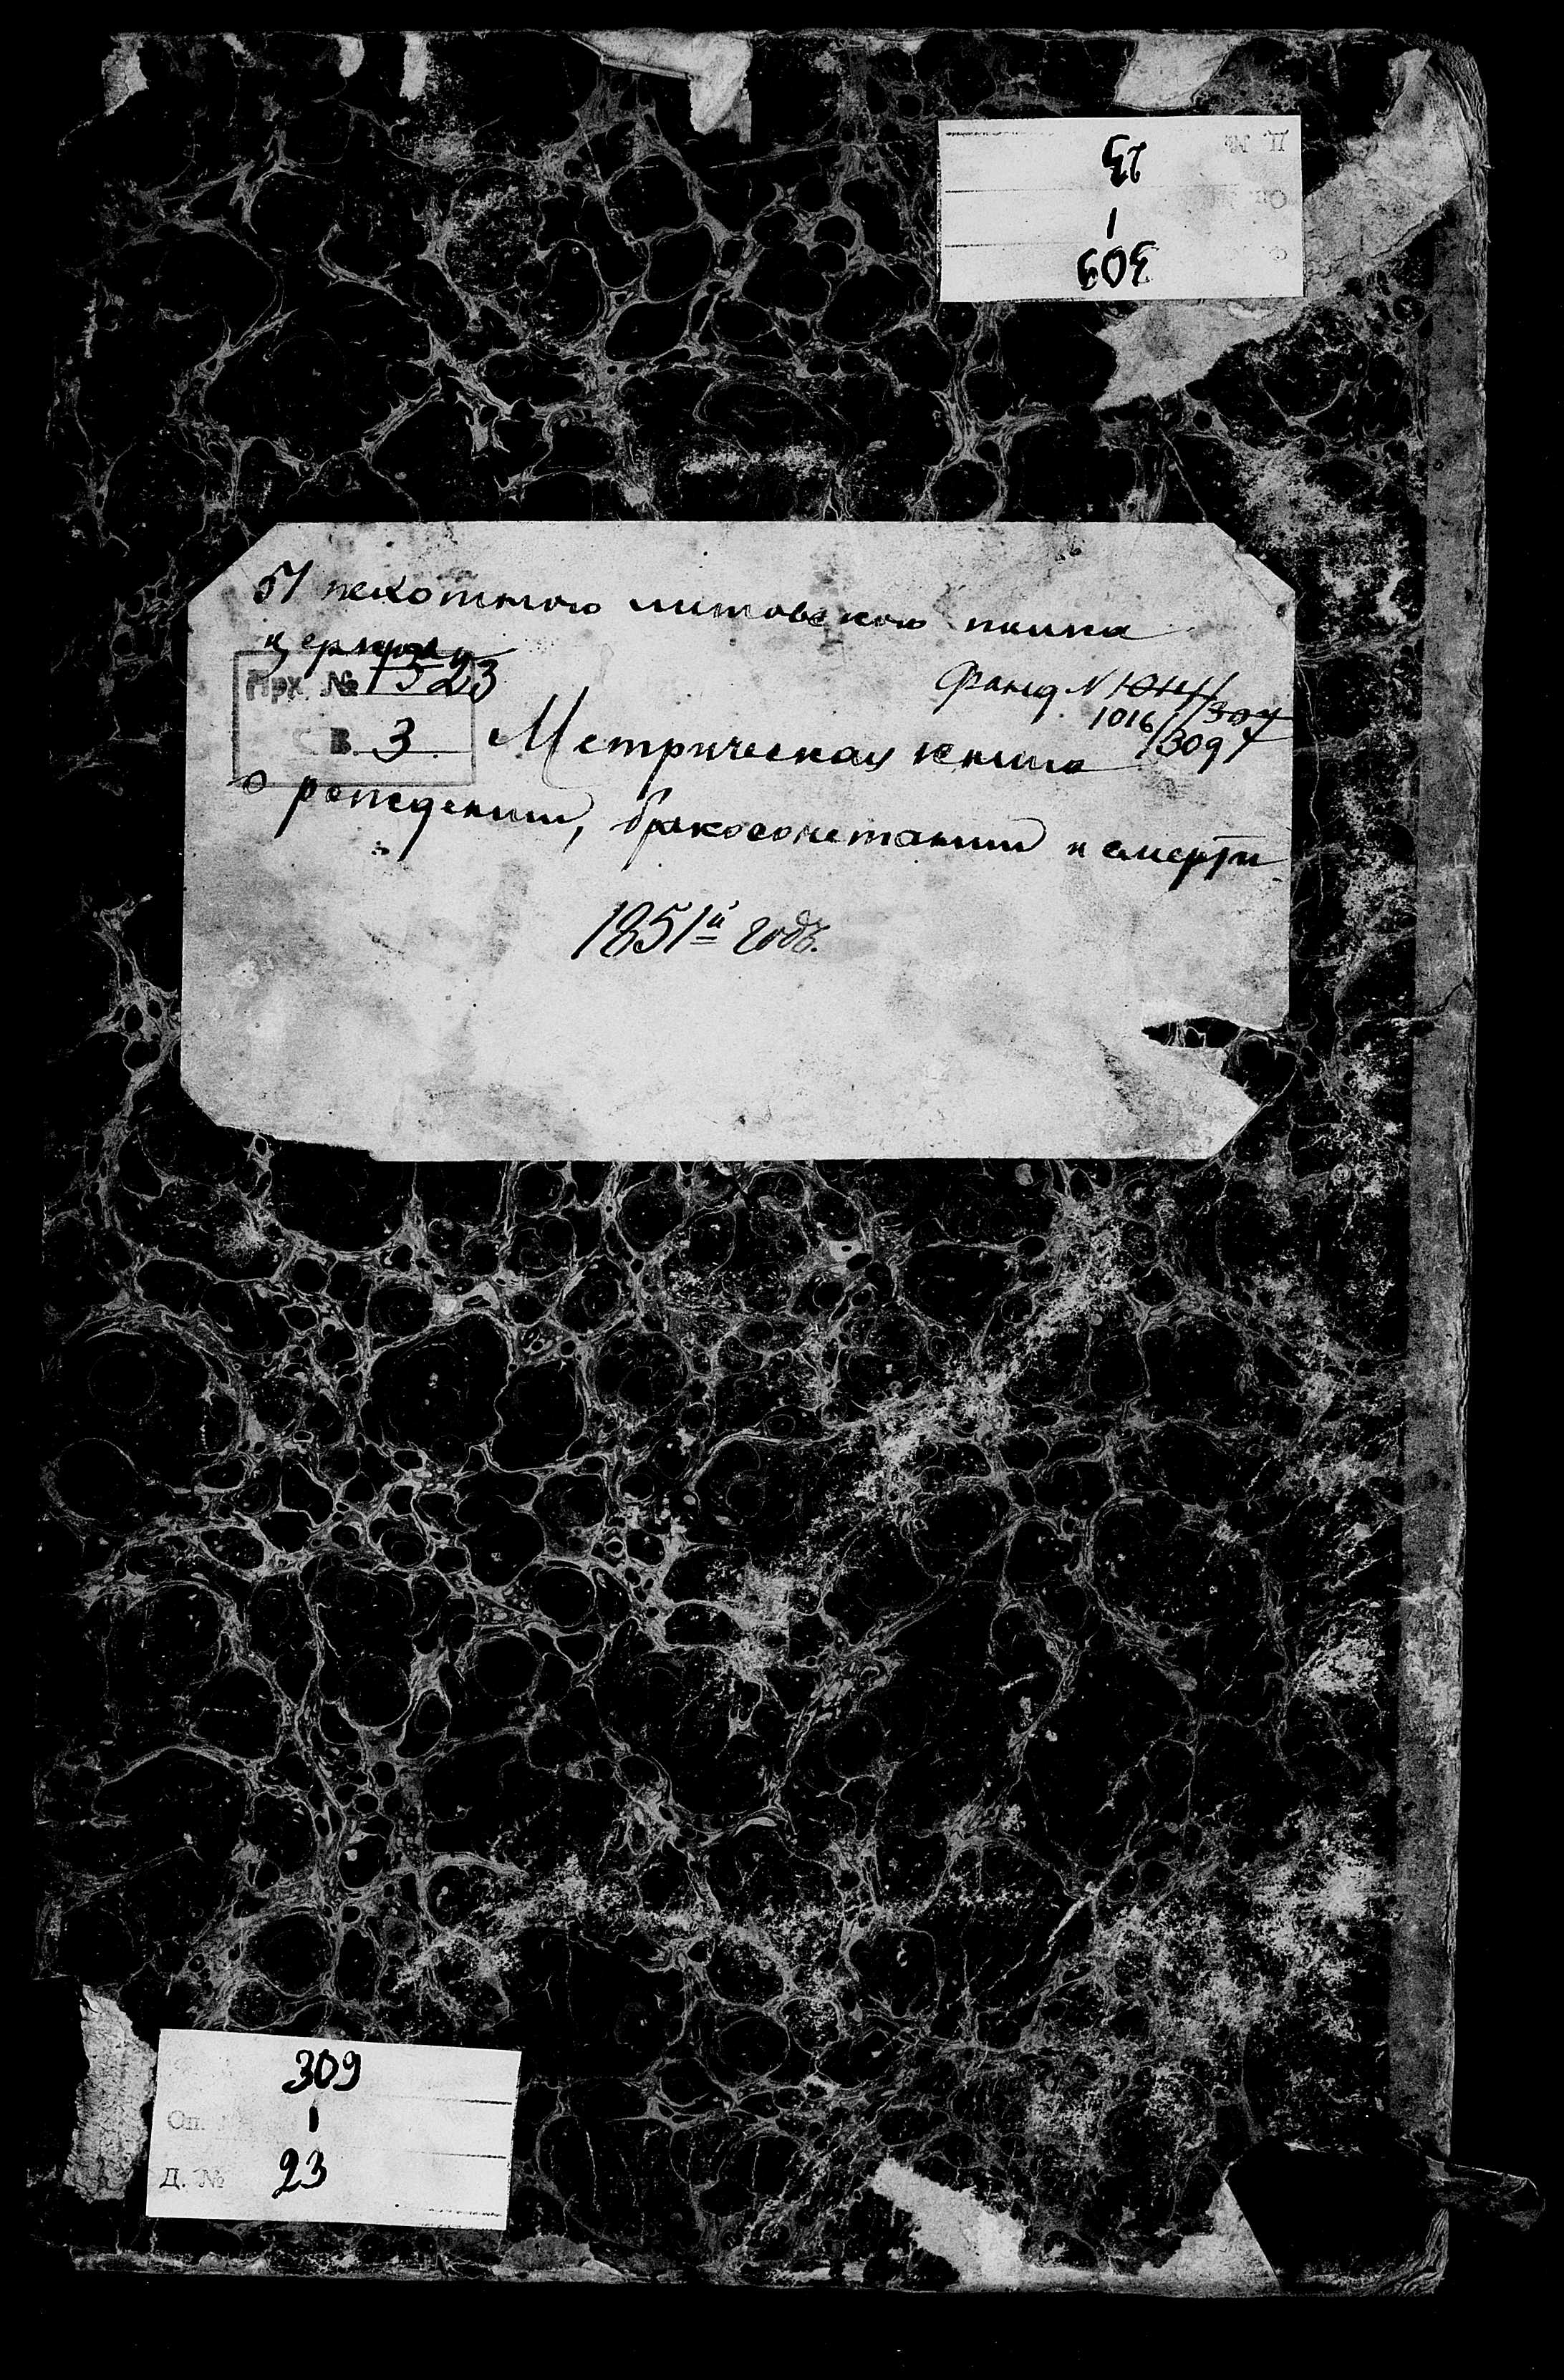 Д. №
23
Оп.
1
309
51 пехотного литовского полка
церкви
Арх. № 1323
Св. 3
Фонд № 1014/307
1016/309
Метрическая книга
о рождении, бракосочетании и смерти
1851й годъ.
309
Оп. 1
Д. № 23